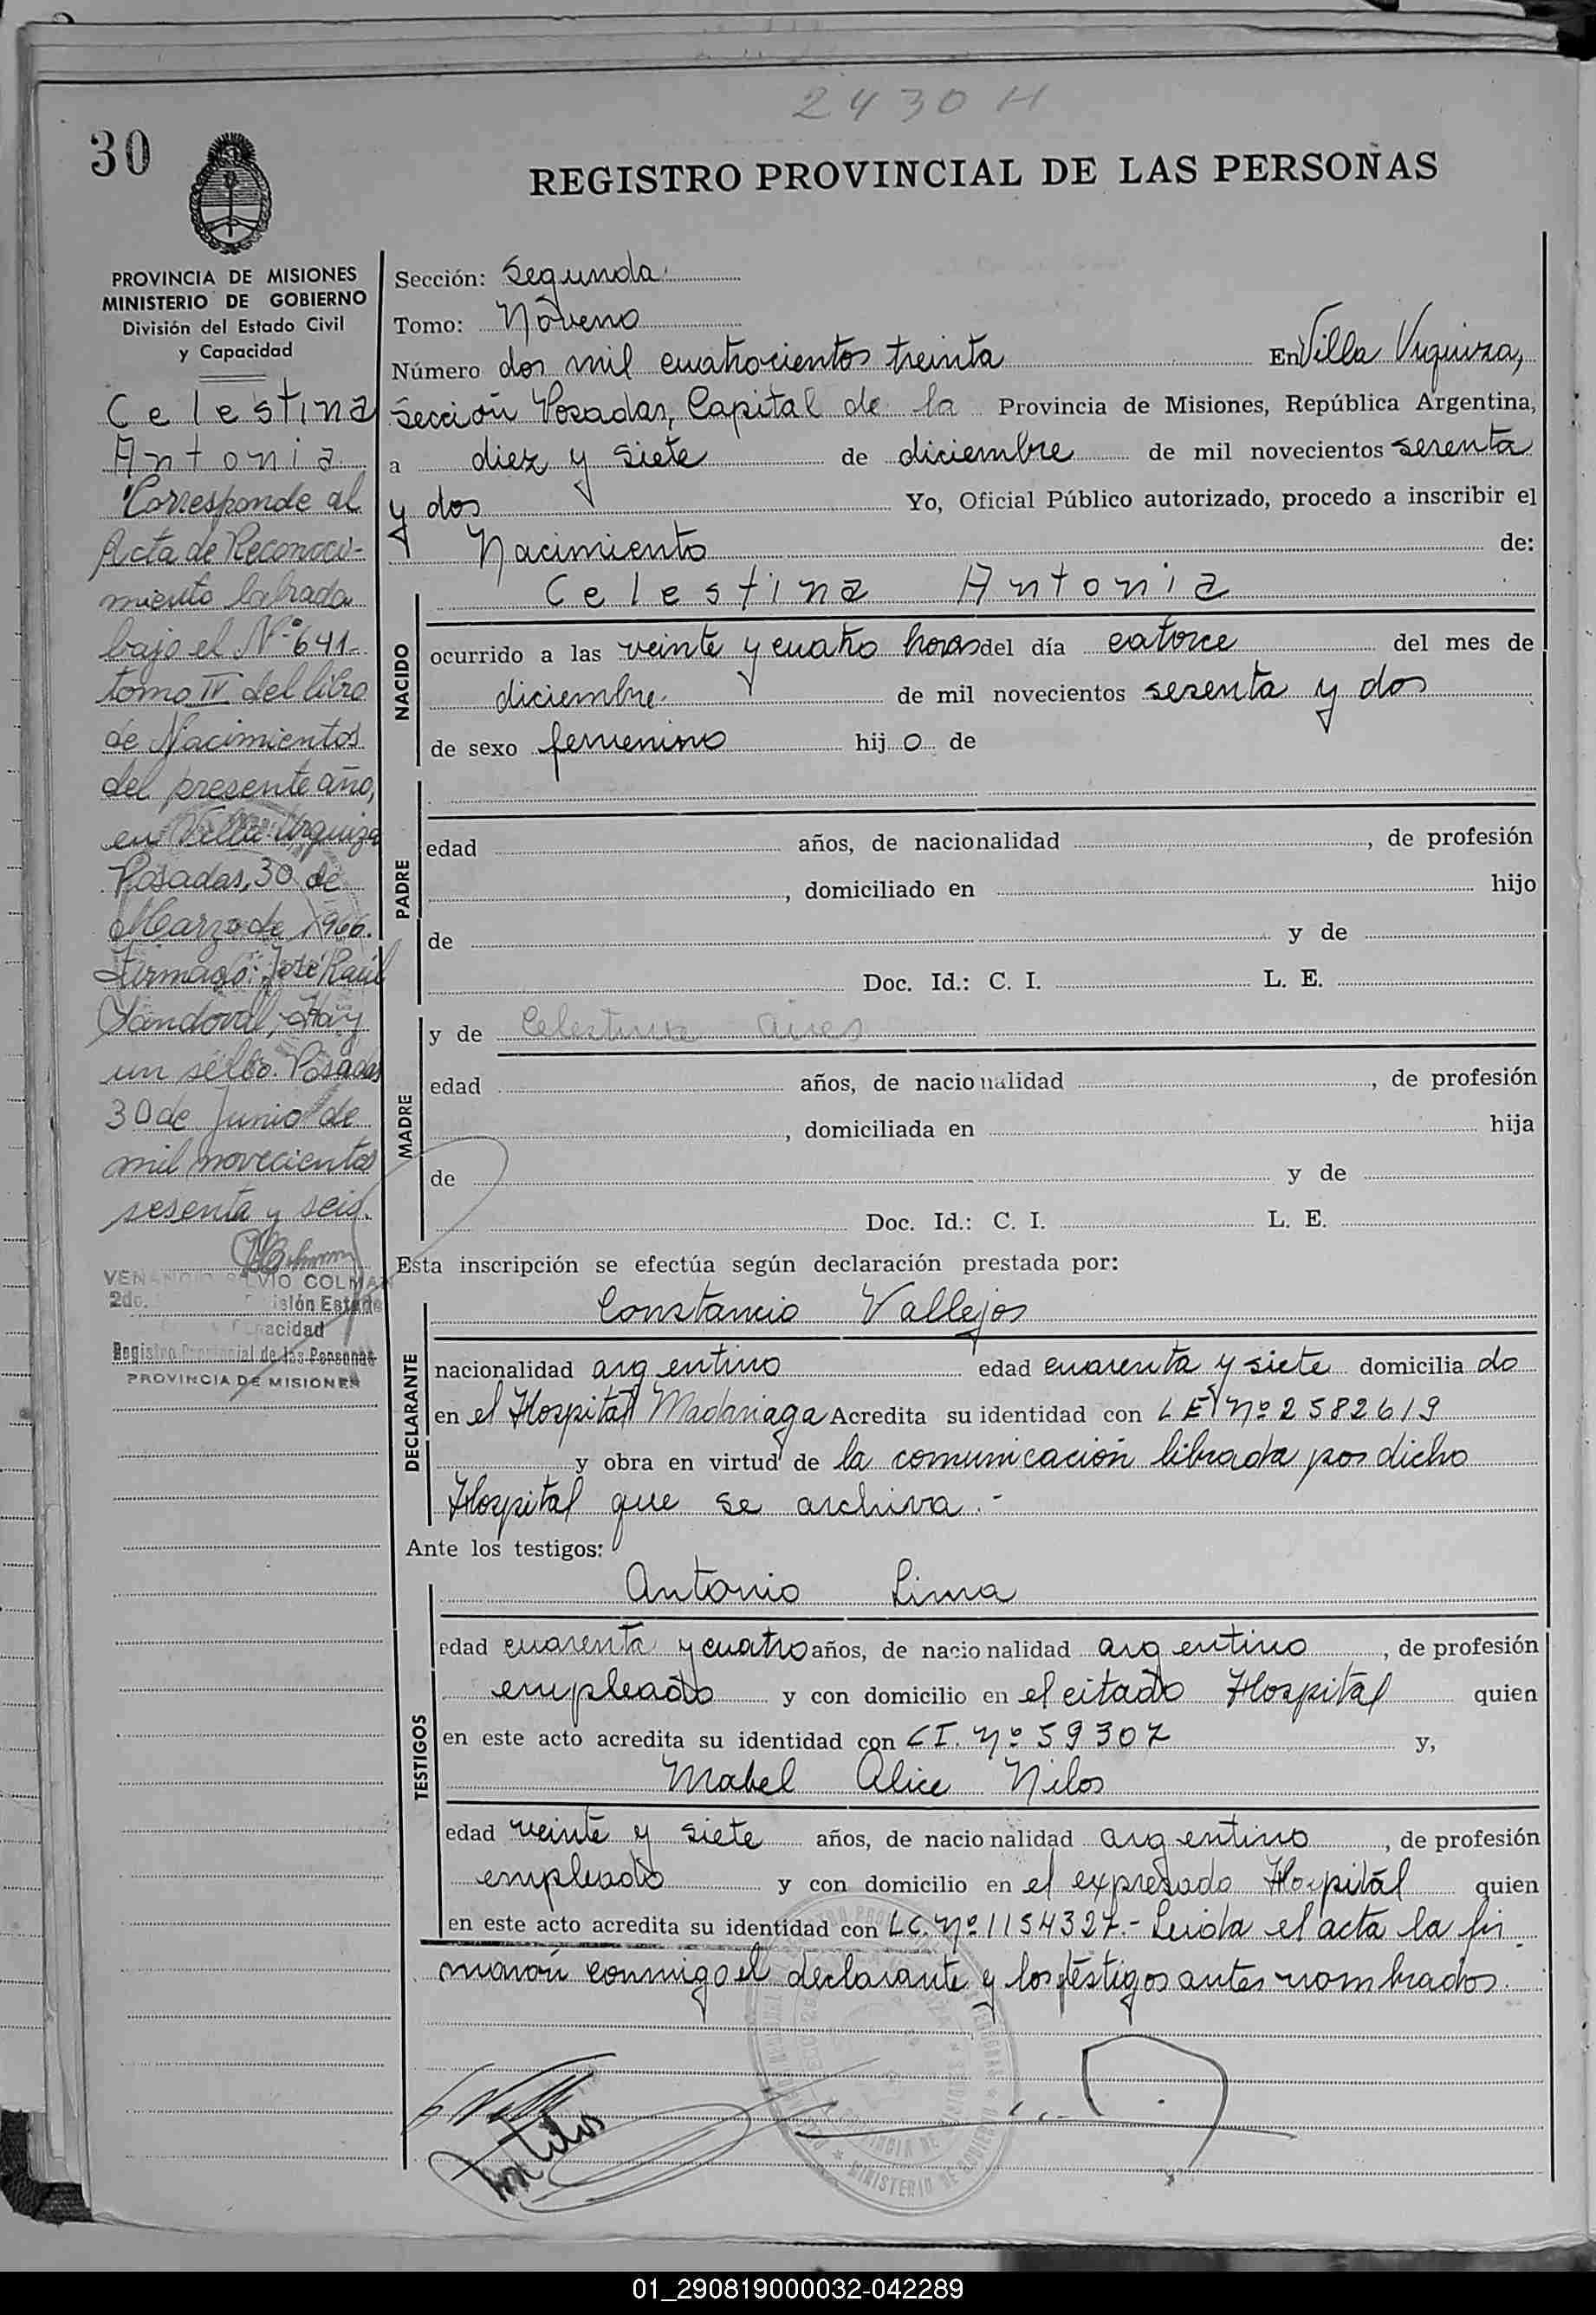 2430 H
30
REGISTRO PROVINCIAL DE LAS PERSONAS
PROVINCIA DE MISIONES
MINISTERIO DE GOBIERNO
División del Estado Civil
y Capacidad
Celestina
Antonia
Corresponde al
Acta de Reconoci-
miento labrada
bajo el Nº 641-
tomo IV del libro
de Nacimientos
del presente año,
en Villa Urquiza
Posadas, 30 de
Marzo de 1966.
Firmado: José Raúl
Sandoval, Hay
un sello. Posadas
30 de Junio de
mil novecientos
sesenta y seis.
VENANCIO SILVIO COLMAN
2do. División Estado
y Capacidad
Registro Provincial de las Personas
PROVINCIA DE MISIONES
Sección: Segunda
Tomo: Noveno
Número dos mil cuatrocientos treinta En Villa Urquiza,
Sección Posadas, Capital de la Provincia de Misiones, República Argentina,
a diez y siete de diciembre de mil novecientos sesenta
y dos Yo, Oficial Público autorizado, procedo a inscribir el
Nacimiento de:
Celestina Antonia
NACIDO
ocurrido a las veinte y cuatro horas del día catorce del mes de
diciembre de mil novecientos sesenta y dos
de sexo femenino hij o de
PADRE
edad años, de nacionalidad , de profesión
, domiciliado en hijo
de y de
Doc. Id.: C. I. L. E.
MADRE
y de Celestina Aires
edad años, de nacionalidad , de profesión
, domiciliada en hija
de y de
Doc. Id.: C. I. L. E.
Esta inscripción se efectúa según declaración prestada por:
DECLARANTE
Constancio Vallejos
nacionalidad argentino edad cuarenta y siete domicilia do
en el Hospital Madariaga Acredita su identidad con L E Nº 2582619
y obra en virtud de la comunicación librada por dicho
Hospital que se archiva.-
Ante los testigos:
TESTIGOS
Antonio Lima
edad cuarenta y cuatro años, de nacionalidad argentino, de profesión
empleado y con domicilio en el citado Hospital quien
en este acto acredita su identidad con C I. Nº 59307 y,
Mabel Alice Nilos
edad veinte y siete años, de nacionalidad argentino, de profesión
empleado y con domicilio en el expresado Hospital quien
en este acto acredita su identidad con L C. Nº 1154327.- Leída el acta la fir
maron conmigo el declarante y los testigos antes nombrados.
01_290819000032-042289